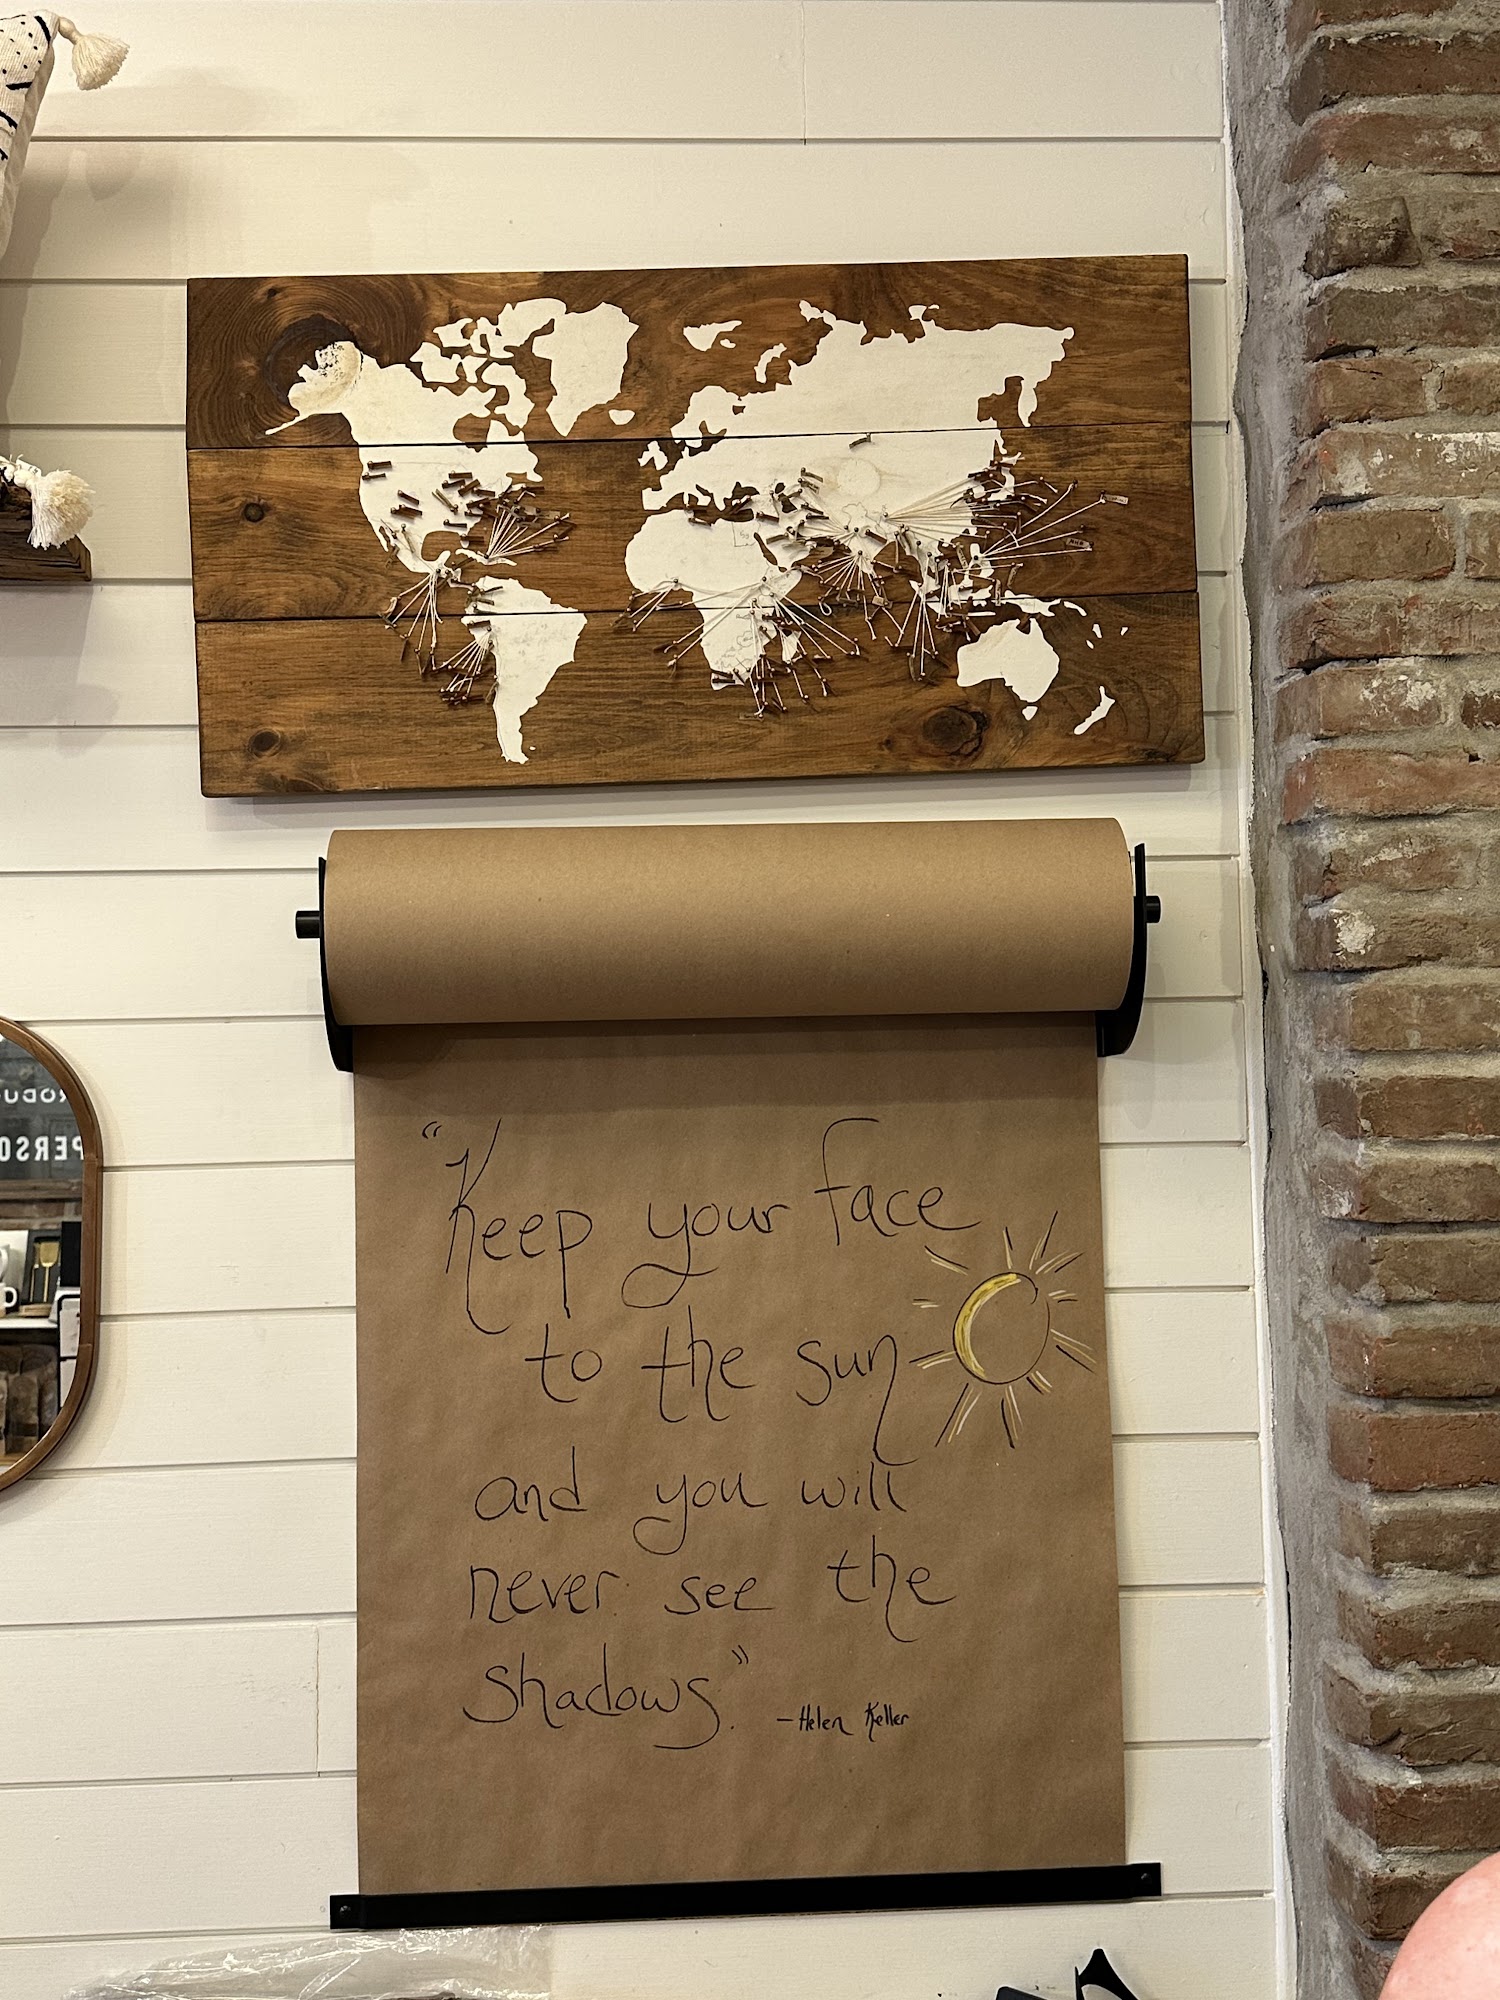 "Keep your face
to the sun
and you will
never see the
shadows."
-Helen Keller
RODU
PERSO